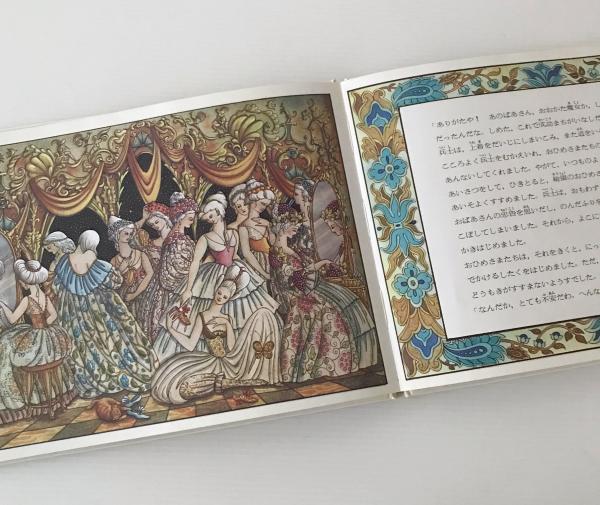 「ありがたや！　あのばあさん、おおかた魔女か、し
だったんだな。しめた。これで沈鐘まちがいなしだ
兵士は、上着をだいじにしまいこみ、また道をい
こころよく兵士をむかえいれ、おひめさまたちの
あんないしてくれました。やがて、いつものよ
あいさつをして、ひきとると、最後のおひめさ
あいそよくすすめました。兵士は、おもわず
おばあさんの忠告を思いだし、のんだふりを
こぼしてしまいました。それから、よこに
かきはじめました。
おひめさまたちは、それをきくと、にっ
でかけるしたくをはじめました。ただ、
どうもきがすすまないようすでした。
「なんだか、とても不安だわ。へんな